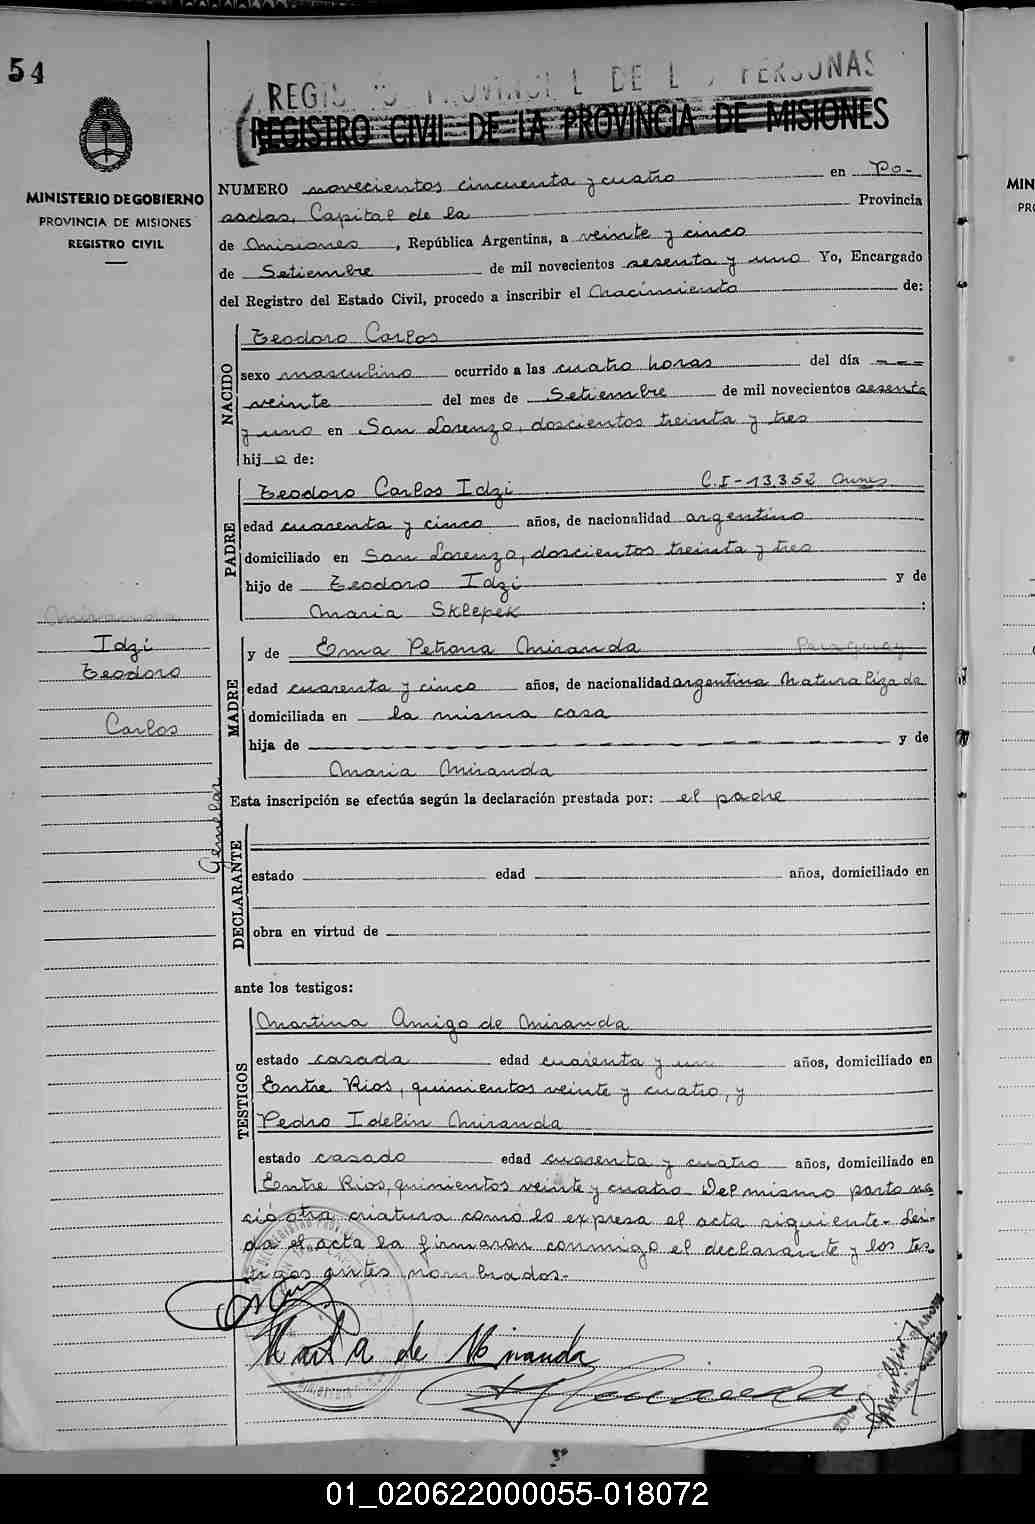 54
REGISTRO CIVIL DE LA PROVINCIA DE MISIONES
MINISTERIO DE GOBIERNO
PROVINCIA DE MISIONES
REGISTRO CIVIL
NUMERO novecientos cincuenta y cuatro en Po-
sadas, Capital de la Provincia
de Misiones, República Argentina, a veinte y cinco
de Setiembre de mil novecientos sesenta y uno Yo, Encargado
del Registro del Estado Civil, procedo a inscribir el Nacimiento de:
NACIDO
Teodoro Carlos
sexo masculino ocurrido a las cuatro horas del día ---
veinte del mes de Setiembre de mil novecientos sesenta
y uno en San Lorenzo, doscientos treinta y tres
hij o de:
PADRE
Teodoro Carlos Idzi C.I-13.352 Mnes
edad cuarenta y cinco años, de nacionalidad argentino
domiciliado en San Lorenzo, doscientos treinta y tres
hijo de Teodoro Idzi y de
Maria Sklepek :
Miranda
Idzi
Teodoro
Carlos
MADRE
y de Ema Petrona Miranda Paraguay
edad cuarenta y cinco años, de nacionalidad argentina Naturalizada
domiciliada en la misma casa
hija de - - - - - - - y de
Maria Miranda
Gemelar
Esta inscripción se efectúa según la declaración prestada por: el padre
DECLARANTE
estado edad años, domiciliado en
obra en virtud de
ante los testigos:
TESTIGOS
Martina Amigo de Miranda
estado casada edad cuarenta y un años, domiciliado en
Entre Rios, quinientos veinte y cuatro, y
Pedro Idelin Miranda
estado casado edad cuarenta y cuatro años, domiciliado en
Entre Rios, quinientos veinte y cuatro Del mismo parto na-
ció otra criatura como lo expresa el acta siguiente- Lei-
da el acta la firmaron conmigo el declarante y los tes-
tigos antes nombrados-
de Miranda
01_020622000055-018072